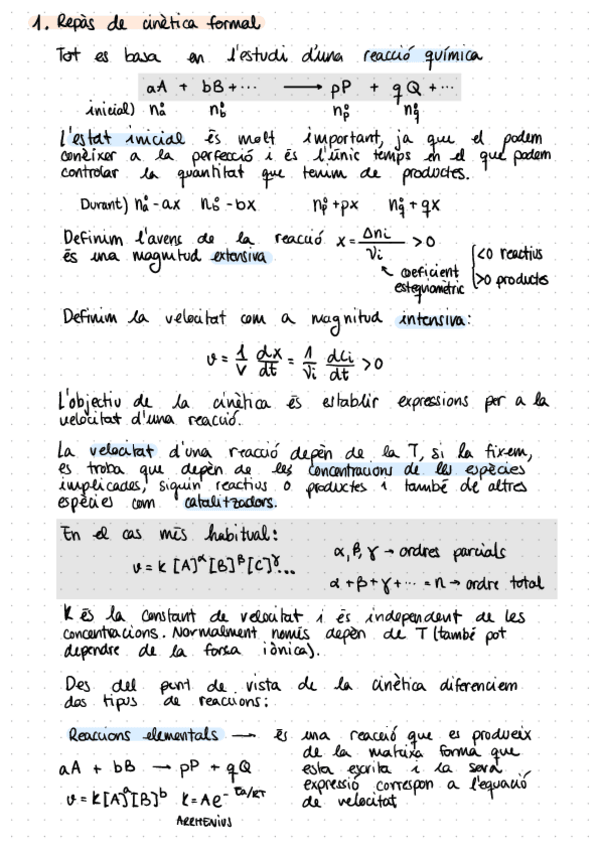 1. Repàs de cinètica formal
Tot es basa en l'estudi d'una reacció química
aA + bB + ··· ⟶ pP + qQ + ···
inicial) nₐ° n_b° nₚ° n_q°
L'estat inicial és molt important, ja que el podem
conèixer a la perfecció i és l'únic temps en el que podem
controlar la quantitat que tenim de productes.
Durant) nₐ° - ax n_b° - bx nₚ° + px n_q° + qx
Definim l'avenç de la reacció x = Δni / νi > 0
és una magnitud extensiva
coeficient estequiomètric
<0 reactius
>0 productes
Definim la velocitat com a magnitud intensiva:
v = 1/V dx/dt = 1/νi dCi/dt > 0
L'objectiu de la cinètica és establir expressions per a la
velocitat d'una reacció.
La velocitat d'una reacció depèn de la T, si la fixem,
es troba que depèn de les concentracions de les espècies
implicades, siguin reactius o productes i també de altres
espècies com catalitzadors.
En el cas més habitual:
v = k [A]^α [B]^β [C]^γ...
α, β, γ → ordres parcials
α + β + γ + ··· = n → ordre total
K és la constant de velocitat i és independent de les
concentracions. Normalment només depèn de T (també pot
dependre de la força iònica).
Des del punt de vista de la cinètica diferenciem
dos tipus de reaccions:
Reaccions elementals ⟶ és una reacció que es produeix
de la mateixa forma que
esta escrita i la seva
expressió correspon a l'equació
de velocitat
aA + bB → pP + qQ
v = k[A]^a[B]^b k = Ae^-Ea/RT
ARRHENIUS